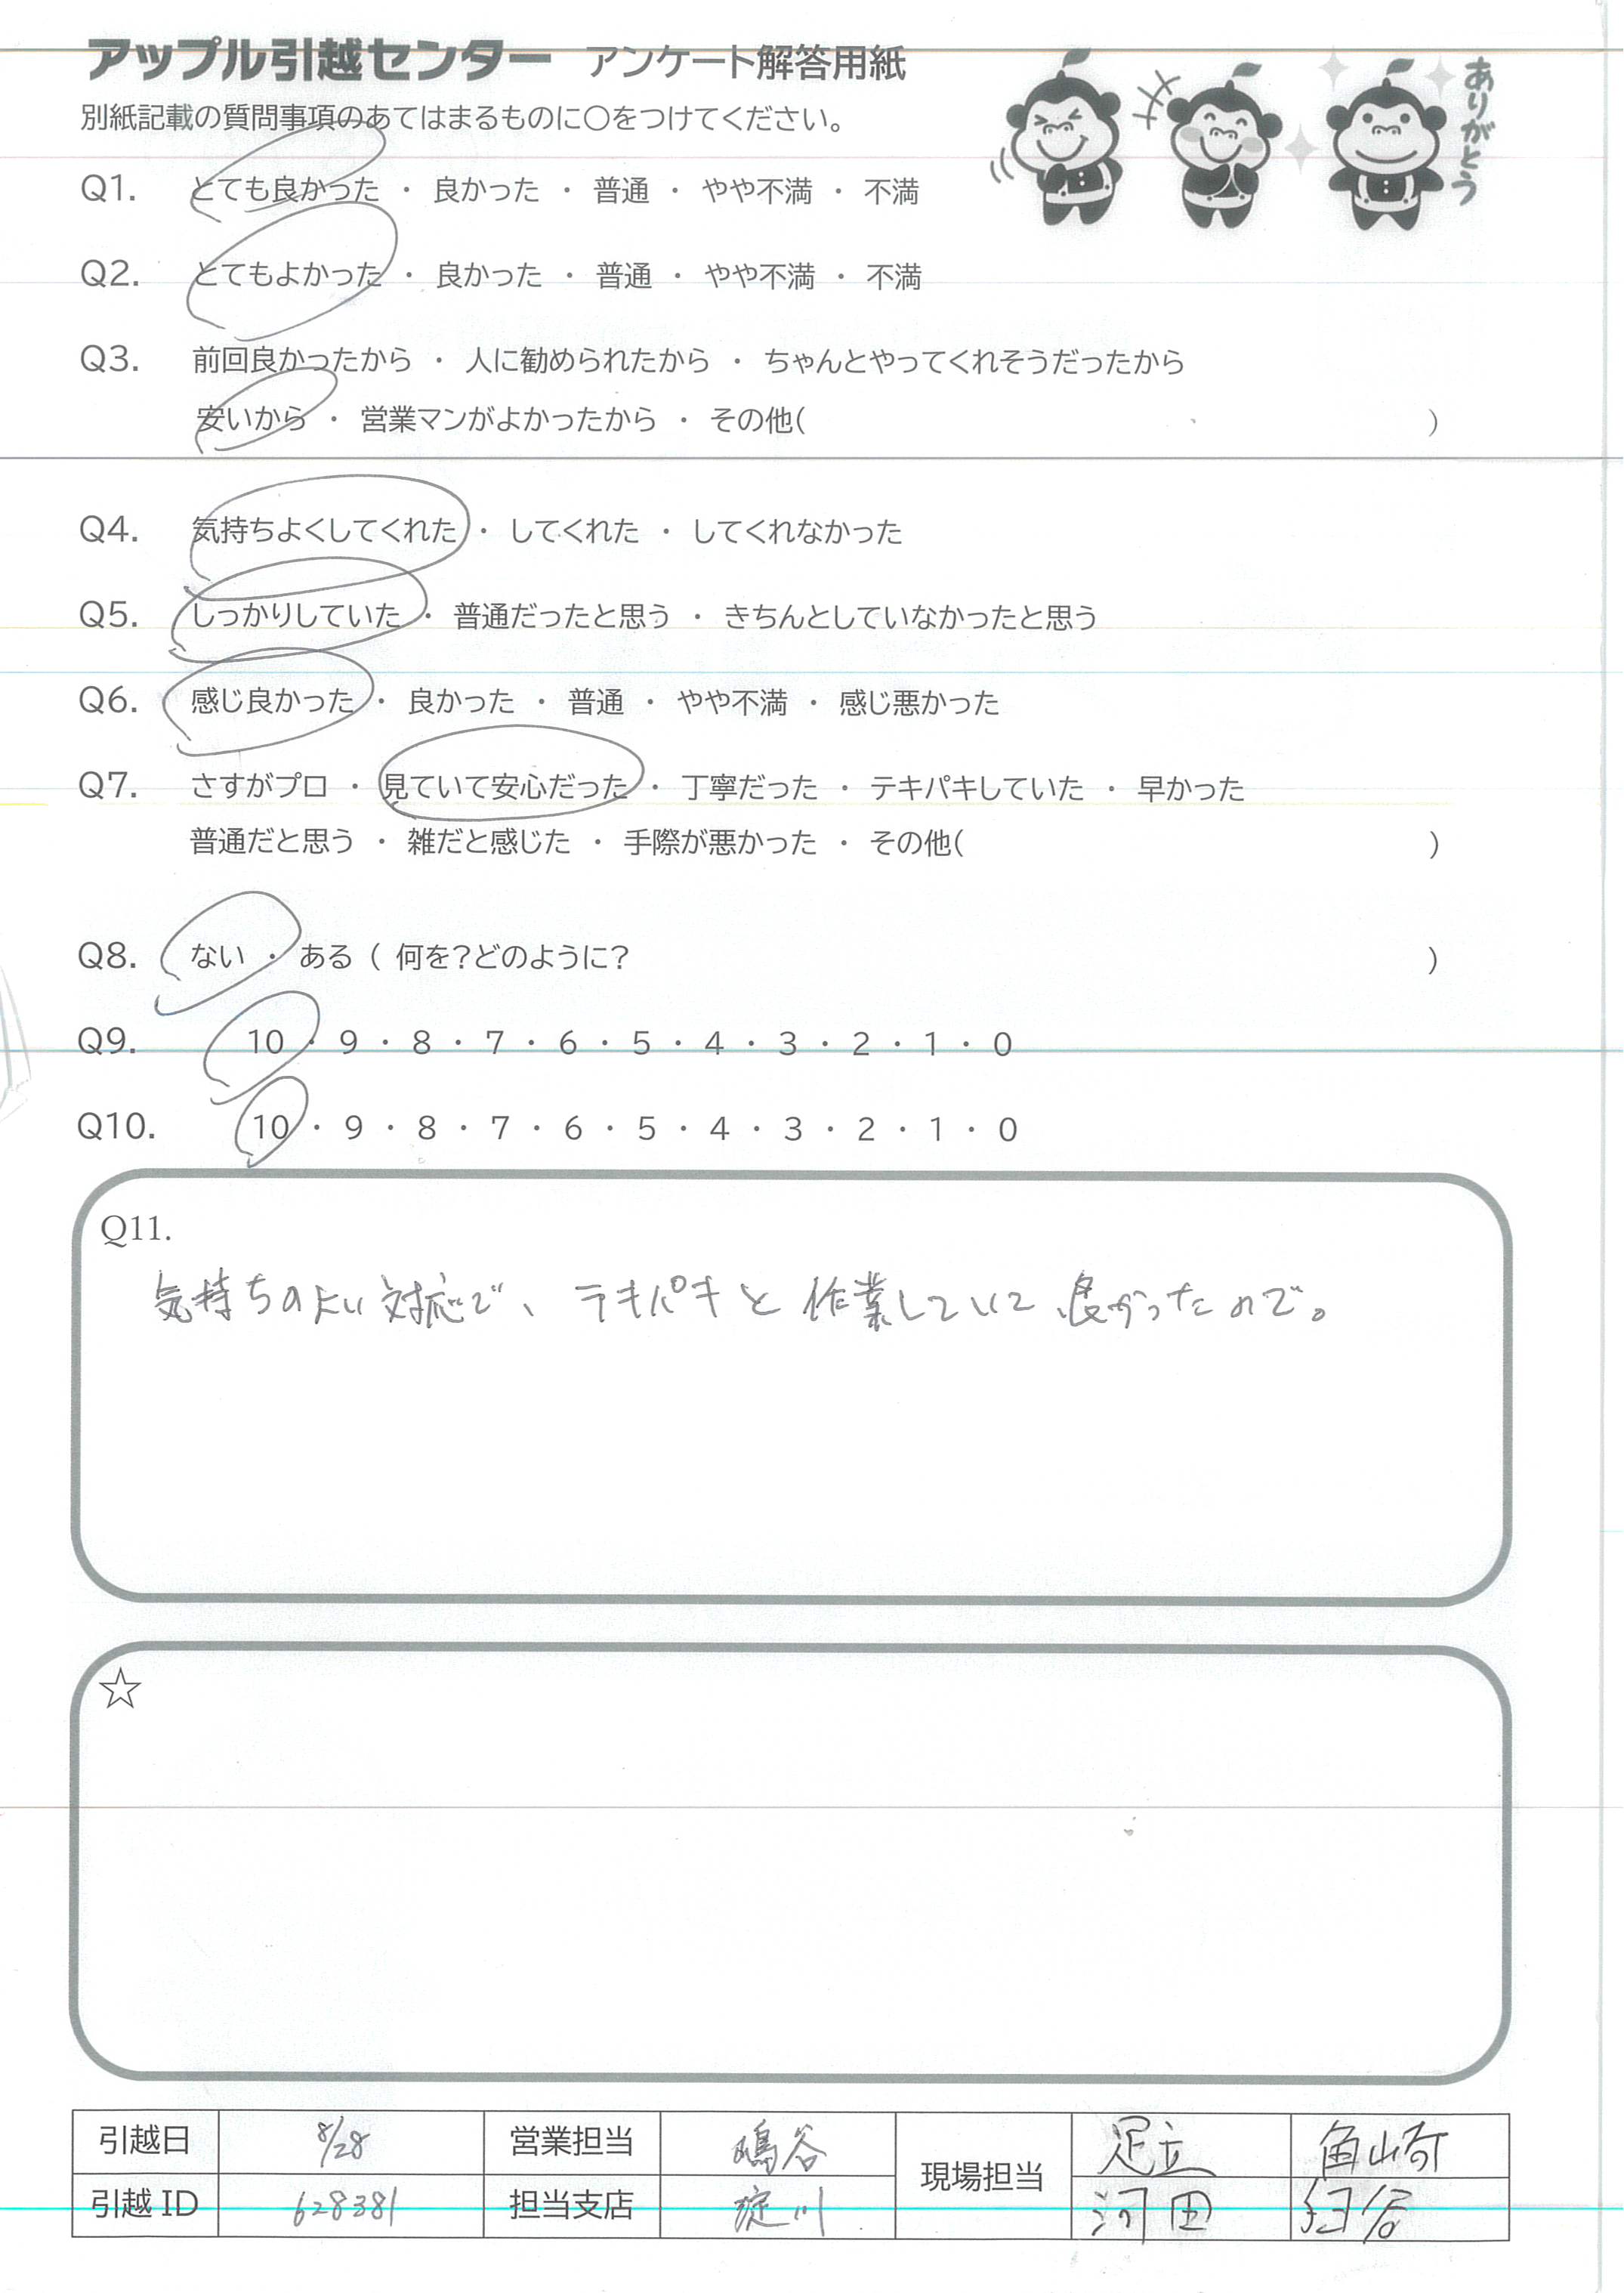 アップル引越センター アンケート解答用紙
別紙記載の質問事項のあてはまるものに〇をつけてください。
ありがとう
Q1. とても良かった ・ 良かった ・ 普通 ・ やや不満 ・ 不満
Q2. とてもよかった ・ 良かった ・ 普通 ・ やや不満 ・ 不満
Q3. 前回良かったから ・ 人に勧められたから ・ ちゃんとやってくれそうだったから
安いから ・ 営業マンがよかったから ・ その他( )
Q4. 気持ちよくしてくれた ・ してくれた ・ してくれなかった
Q5. しっかりしていた ・ 普通だったと思う ・ きちんとしていなかったと思う
Q6. 感じ良かった ・ 良かった ・ 普通 ・ やや不満 ・ 感じ悪かった
Q7. さすがプロ ・ 見ていて安心だった ・ 丁寧だった ・ テキパキしていた ・ 早かった
普通だと思う ・ 雑だと感じた ・ 手際が悪かった ・ その他( )
Q8. ない ・ ある ( 何を?どのように? )
Q9. 10 ・ 9 ・ 8 ・ 7 ・ 6 ・ 5 ・ 4 ・ 3 ・ 2 ・ 1 ・ 0
Q10. 10 ・ 9 ・ 8 ・ 7 ・ 6 ・ 5 ・ 4 ・ 3 ・ 2 ・ 1 ・ 0
Q11.
気持ちのよい対応で、テキパキと作業していて良かったので。
☆
引越日 8/28 営業担当 嶋谷 現場担当 足立 角崎
引越 ID 628381 担当支店 淀川 河田